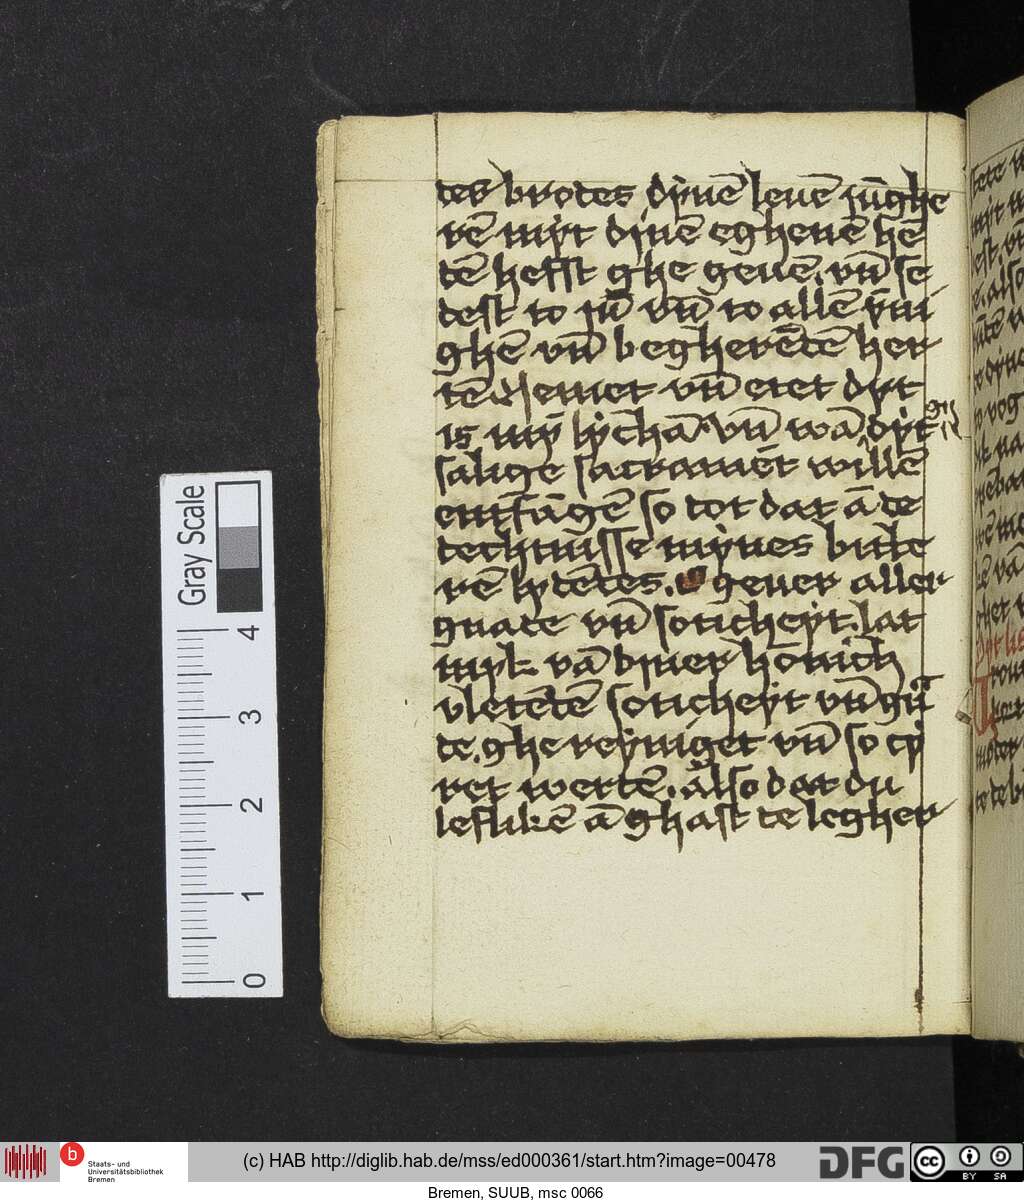 des brodes dynē leuē iūghe
rē myt dynē egheuē hē
dē hefft ghe geuē. vn̄ se
dest to iū vn̄ to allē
ghē vn̄ begherēdē her
tē Nemet vn̄ etet dyt
is mȳ lychā vn̄ wā dyt
salige sacramēt willē
entfāgē so dot dat ā de
dechtnisse mynes bitte
rē lydēdes. O geuer aller
gnade vn̄ soticheyt. lat
myk vā dyner honich
vletēdē soticheyt vn̄ gu
de. ghereyniget vn̄ so
ret werdē. Also dat du
lefliken ā ghast de legher
Gray Scale
4
3
2
1
0
b
Staats- und
Universitätsbibliothek
Bremen
(c) HAB http://diglib.hab.de/mss/ed000361/start.htm?image=00478
DFG
cc BY SA
Bremen, SUUB, msc 0066